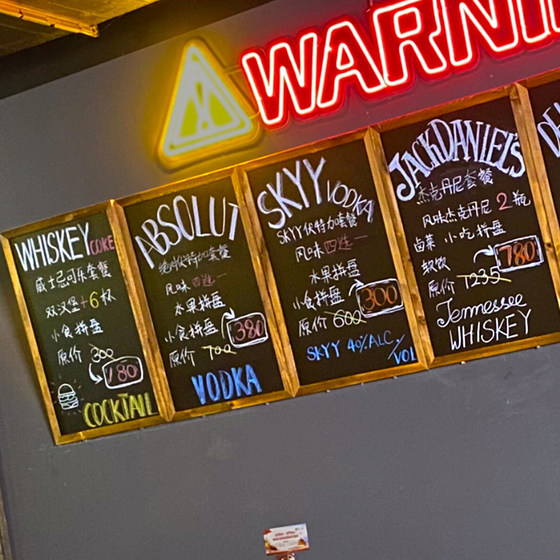 WARNI
WHISKEY COKE
威士忌可乐套餐
双汉堡+6杯
小食拼盘
原价 300
180
COCKTAIL
ABSOLUT
绝对伏特加套餐
风味四选一
水果拼盘
小食拼盘
原价 700
380
VODKA
SKYY VODKA
SKYY伏特加套餐
风味四选一
水果拼盘
小食拼盘
原价 600
300
SKYY 40%ALC/VOL
JACK DANIEL'S
杰克丹尼套餐
风味杰克丹尼 2瓶
卤菜 小吃拼盘
软饮
原价 1235
780
Tennessee
WHISKEY